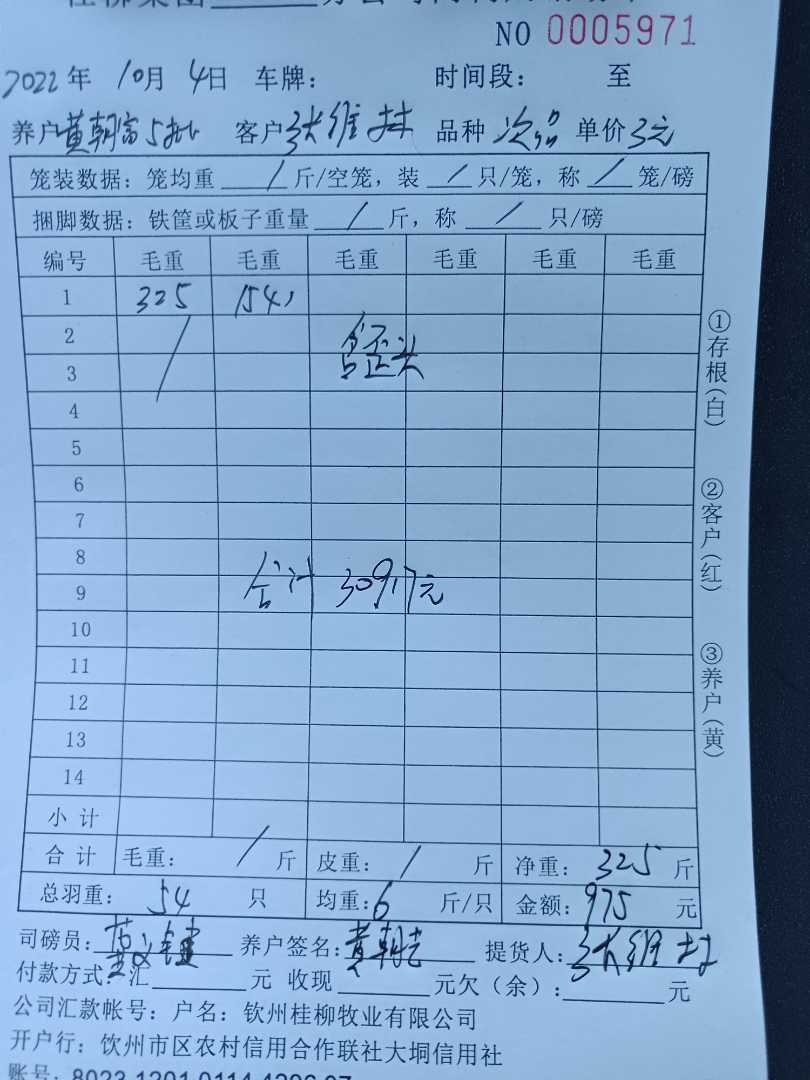 NO 0005971
2022年 10月 4日 车牌: 时间段: 至
养户黄朝富5批 客户张维林 品种 次品 单价3元
笼装数据: 笼均重 / 斤/空笼, 装 / 只/笼, 称 / 笼/磅
捆脚数据: 铁筐或板子重量 / 斤, 称 / 只/磅
编号 毛重 毛重 毛重 毛重 毛重 毛重
1 325 154
2
3
4
5
6
7
8
9
合计 30917元
10
11
12
13
14
小计
合计 毛重: / 斤 皮重: / 斤 净重: 325 斤
总羽重: 54 只 均重:6 斤/只 金额: 975 元
司磅员: 养户签名: 黄朝 提货人: 张维林
付款方式: 汇 元 收现 元欠(余): 元
公司汇款帐号: 户名: 钦州桂柳牧业有限公司
开户行: 钦州市区农村信用合作联社大垌信用社
①存根(白)
②客户(红)
③养户(黄)